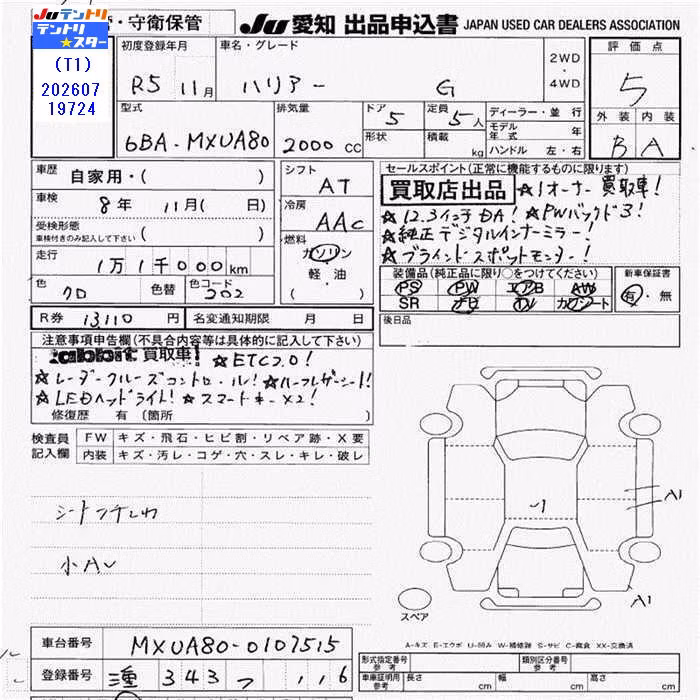 JU テントリ
テントリ★スター
(T1)
202607
19724
・守衛保管
Ju 愛知 出品申込書 JAPAN USED CAR DEALERS ASSOCIATION
初度登録年月 R5 11月
車名・グレード ハリアー G
2WD・4WD
評価点 5
外装 内装
B A
型式 6BA-MXUA80
排気量 2000 cc
ドア 5
形状
定員 5人
積載 kg
ディーラー・並行
モデル年式 年
ハンドル 左・右
車歴 自家用・( )
車検 8年 11月( 日)
受検形態 ( )
車検付きのみ記入して下さい
走行 1万1千000km
色 クロ 色替 色コード 202
シフト AT
冷房 AAC
燃料 ガソリン
軽・油
( )
セールスポイント(正常に機能するものに限ります)
買取店出品 ★1オーナー買取車!
★12.3インチDA! ★PWバックドア!
★純正デジタルインナーミラー!
★ブラインドスポットモニター!
装備品(純正品に限り○をつけてください)
PS PW エアB AW
SR ナビ TV カワシート
新車保証書
有・無
R券 13,110 円 名変通知期限 月 日
後日品
注意事項申告欄(不具合内容等は具体的に記入して下さい)
買取車! ★ETC2.0!
★レーダークルーズコントロール! ★ハーフレザーシート!
★LEDヘッドライト! ★スマートキーX2!
修復歴 有 (箇所 )
検査員記入欄
FW キズ・飛石・ヒビ割・リペア跡・X要
内装 キズ・汚レ・コゲ・穴・スレ・キレ・破レ
小A
A1
A1
スペア
A-キズ E-エクボ U-凹み W-補修跡 S-サビ C-腐食 XX-交換済
車台番号 MXUA80-0107515
登録番号 343 つ ・116
形式指定番号 参考
類別区分番号 参考
車庫証明用 参考 長さ cm 幅 cm 高さ cm